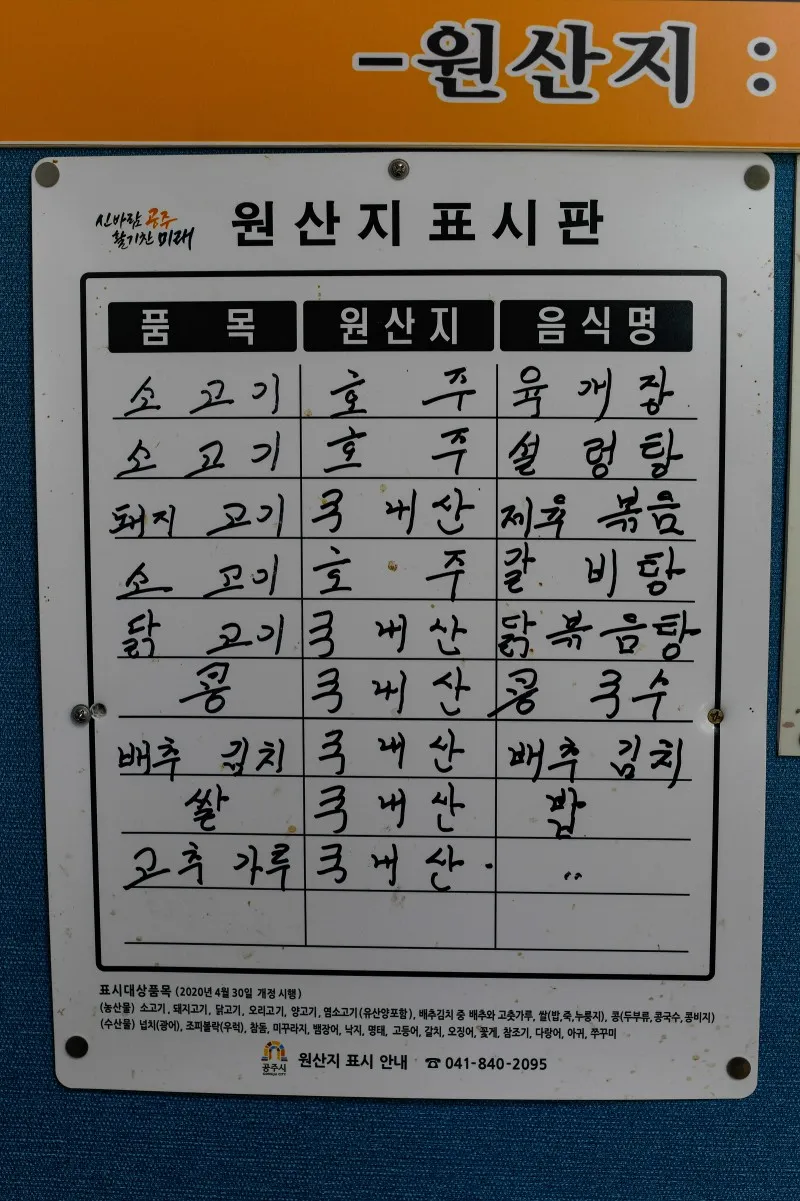 -원산지 :
신바람 공주
활기찬 미래
원산지 표시판
품목 원산지 음식명
소고기 호주 육개장
소고기 호주 설렁탕
돼지고기 국내산 제육볶음
소고기 호주 갈비탕
닭고기 국내산 닭볶음탕
콩 국내산 콩국수
배추김치 국내산 배추김치
쌀 국내산 밥
고추가루 국내산. "
표시대상품목 (2020년 4월 30일 개정 시행)
(농산물) 소고기, 돼지고기, 닭고기, 오리고기, 양고기, 염소고기(유산양포함), 배추김치 중 배추와 고춧가루, 쌀(밥,죽,누룽지), 콩(두부류,콩국수,콩비지)
(수산물) 넙치(광어), 조피볼락(우럭), 참돔, 미꾸라지, 뱀장어, 낙지, 명태, 고등어, 갈치, 오징어, 꽃게, 참조기, 다랑어, 아귀, 쭈꾸미
공주시 원산지 표시 안내 ☎041-840-2095